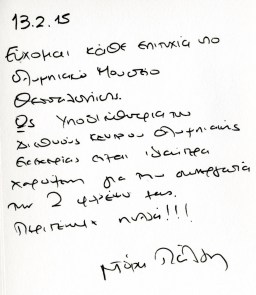 13.2.15
Εύχομαι κάθε επιτυχία στο
Ολυμπιακό Μουσείο
Θεσσαλονίκης.
Ως Υποδιευθύντρια του
Διεθνούς Κέντρου Ολυμπιακής
Εκεχειρίας είμαι ιδιαίτερα
χαρούμενη για την συνεργασία
των 2 φορέων μας.
Περιμένουμε πολλά!!!